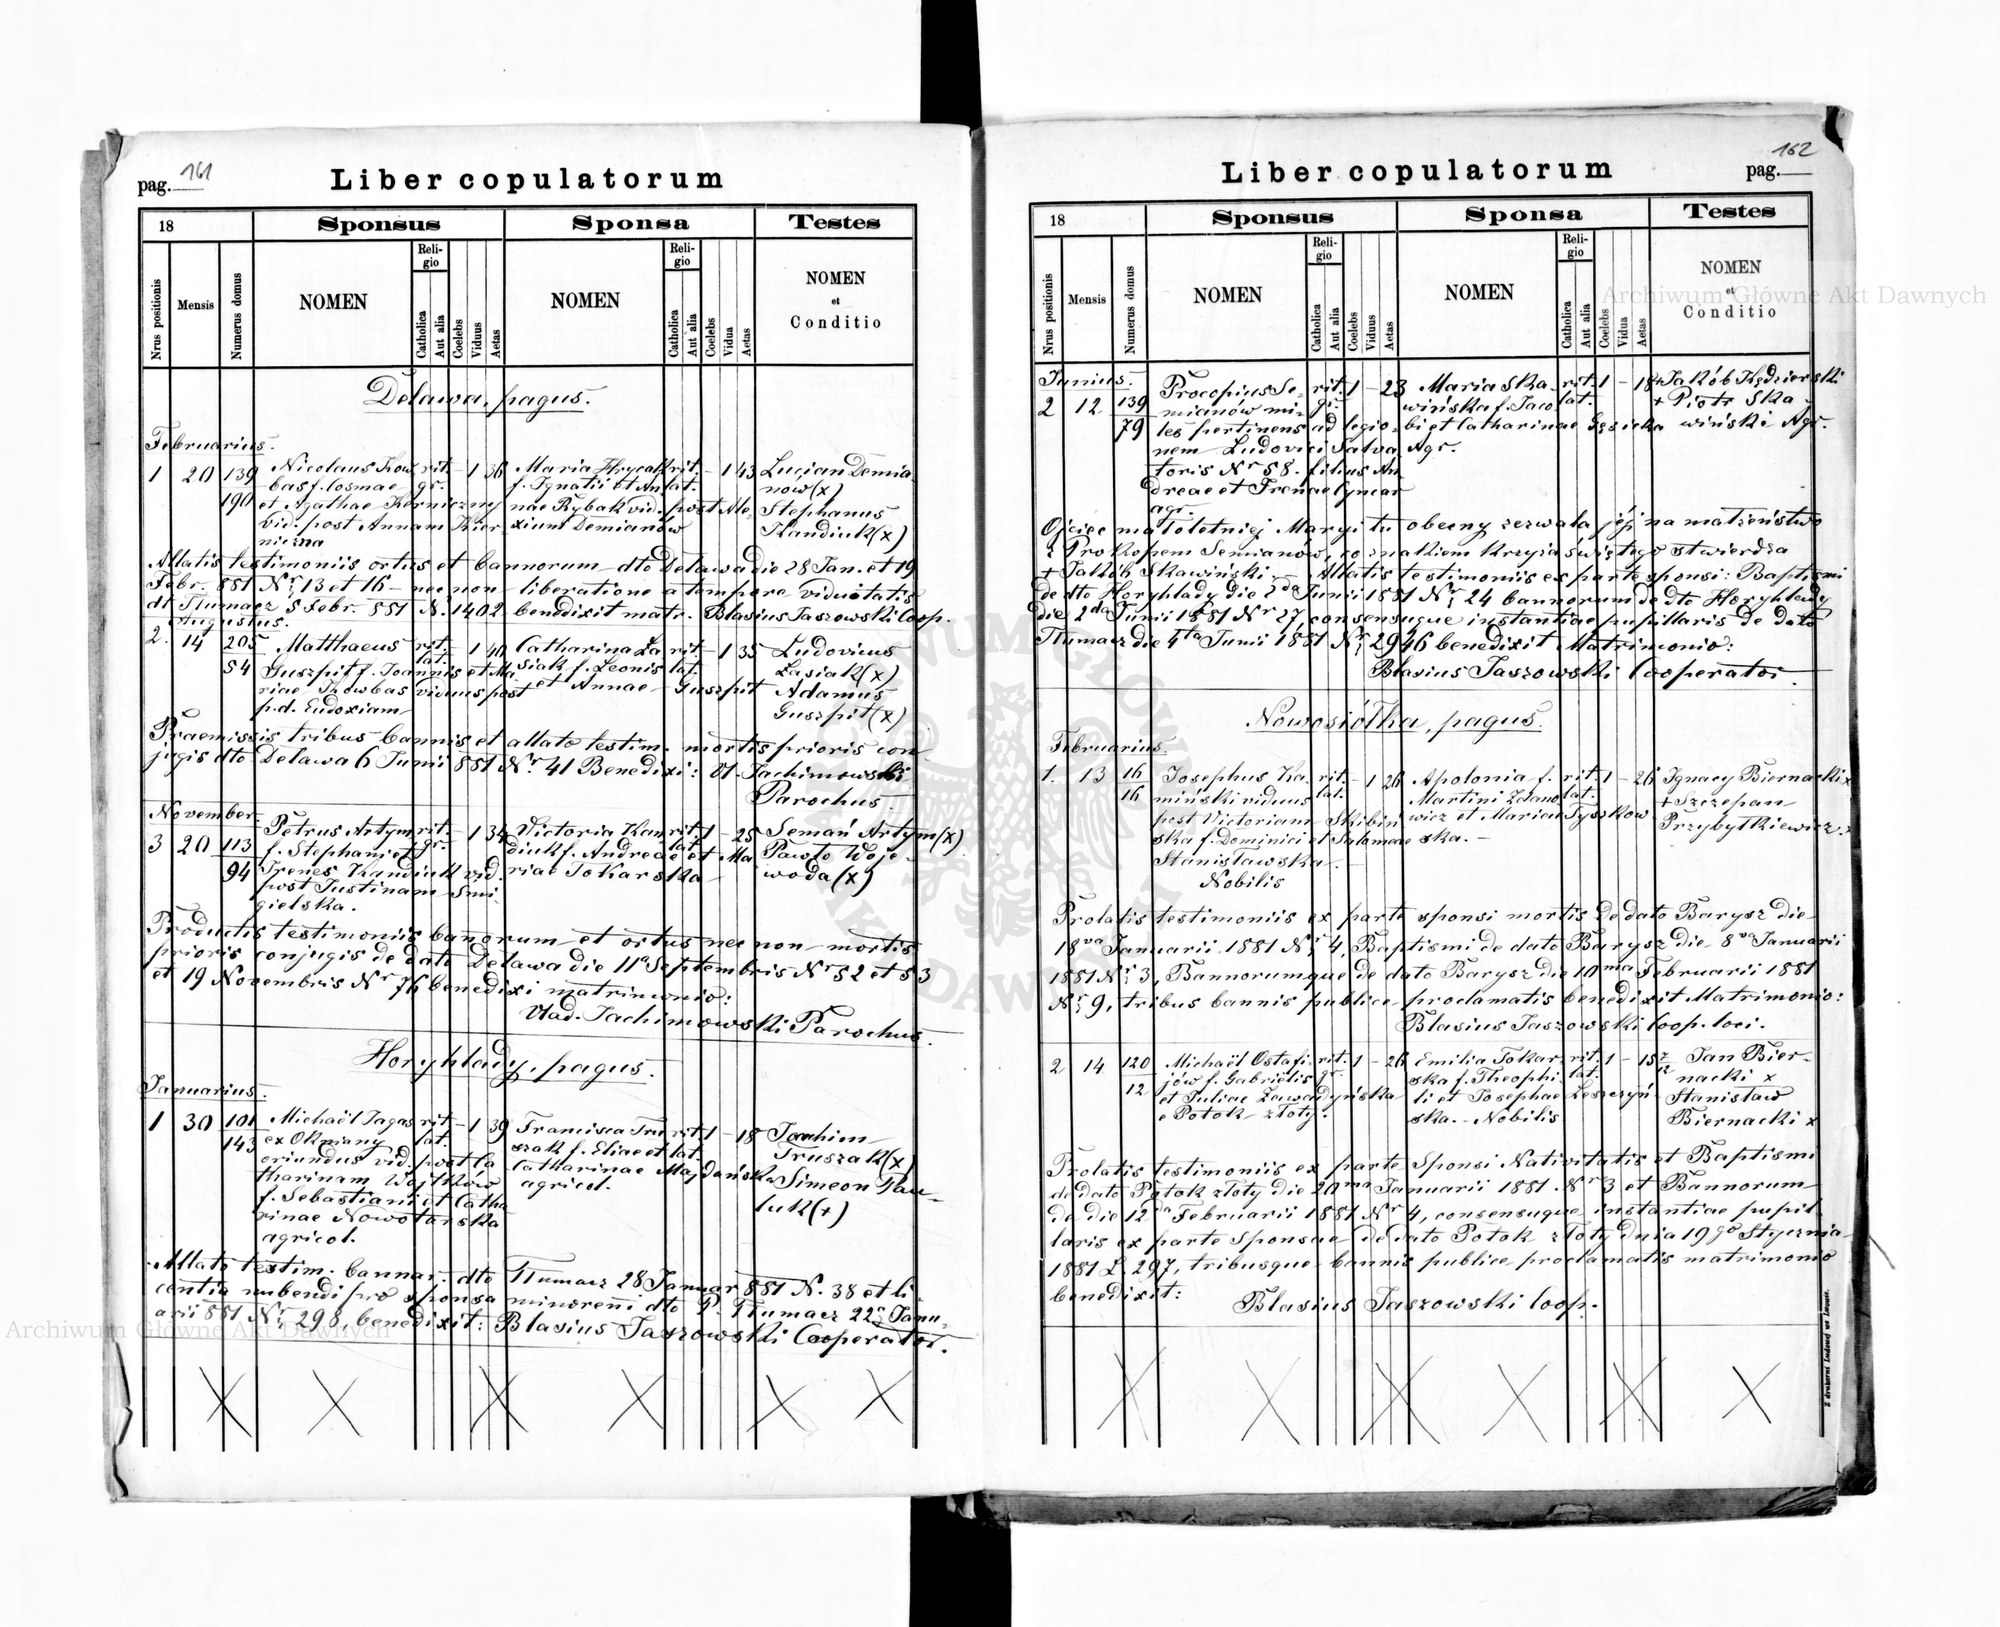 pag. 161
Liber copulatorum
18
Sponsus
Sponsa
Testes
Nrus positionis
Mensis
Numerus domus
NOMEN
Religio
Catholica
Aut alia
Coelebs
Viduus
Aetas
NOMEN
Religio
Catholica
Aut alia
Coelebs
Vidua
Aetas
NOMEN
et
Conditio
Delawa, pagus.
Februarius.
1 20 139 Nicolaus Kow rit. – 1 36 Maria Hrycak rit. – 1 43 Lucian Demia
bas f. Cosmae gr. f. Ignatii et An lat. nów (x)
190 et Agathae Kerniczny nae Rybak vid. post Ale- Stephanus
vid. post Annam Kier xium Demianów Kandiuk (x)
niczna
Allatis testimoniis ortus et bannorum dto Delawa die 28 Jan. et 19
Febr. 881 Nr 13 et 16 – nec non liberatione a tempore viduitatis
dt Tłumacz 8 Febr. 881 N. 1402 benedixit matr. Blasius Jaszowski Coop.
Augustus.
2. 14 205 Matthaeus rit. – 1 40 Catharina La rit. – 1 35 Ludovicus
54 Guszpit f. Joannis et Ma lat. siak f. Leonis lat. Lasiak (x)
riae Kowbas viduus post et Annae Guszpit Adamus
p.d. Eudoxiam Guszpit (x)
Praemissis tribus bannis et allato testim. mortis prioris con
jugis dto Delawa 6 Junii 881 Nr. 41 Benedixi: Vl. Jachimowski
Parochus.
November.
3 20 113 Petrus Artym rit. – 1 34 Victoria Kan rit. 1 – 25 Semań Artym (x)
f. Stephani et gr. diuk f. Andreae et Ma lat. Pawło Woje-
94 Irenes Kandiuk vid. riae Tokarska woda (x)
post Justinam Smi
gielska.
Productis testimoniis banorum et ortus nec non mortis
prioris conjugis de dato Delawa die 11a Septembris Nr 52 et 53
et 19 Novembris Nr 76 benedixi matrimonio:
Vlad. Jachimowski Parochus.
Horyhlady, pagus.
Januarius.
1 30 101 Michaël Jagas rit. – 1 39 Francisca Tru rit. 1 – 18 Joachim
143 ex Okniany lat. szak f. Eliae et lat. Truszak (x)
oriundus vid. post Ca Catharinae Majdańska Simeon Pau-
tharinam Wojtków agricol. luk (+)
f. Sebastiani et Catha
rinae Nowotarska
agricol.
Allato testim. bannor. dto Tłumacz 28 Januar 881 N. 38 et li
centia nubendi pro sponsa minoreni dto P. Tłumacz 22 Janu-
arii 881 Nr 298, benedixit: Blasius Jaszowski Cooperator.
162
Liber copulatorum
pag.
18
Sponsus
Sponsa
Testes
Nrus positionis
Mensis
Numerus domus
NOMEN
Religio
Catholica
Aut alia
Coelebs
Viduus
Aetas
NOMEN
Religio
Catholica
Aut alia
Coelebs
Vidua
Aetas
NOMEN
et
Conditio
Junius.
2 12 139 Procopius Se- rit. 1 – 23 Maria Ska rit. 1 – 18 + Jakób Kędzierski
79 mianów mi- gr. wińska f. Jaco lat. + Piotr Ska
les pertinens ad legio- bi et Catharinae Gęsicka wiński Agr.
nem Ludovici Salva Agr.
toris Nr 58. filius An
dreae et Irenae Cymar
agr.
Ojciec małoletniej Maryi tu obecny zezwala jéj na małżeństwo
z Prokopem Semianów, co znakiem krzyża świętego stwierdza
+ Jakób Skawiński – Allatis testimoniis ex parte sponsi: Baptismi
de dto Horyhlady die 2da Junii 1881 Nr 24 bannorum de dto Horyhlady
die 2da Junii 1881 Nr 27, consensuque instantiae pupillaris de dato
Tłumacz die 4ta Junii 1881 Nr 2946 benedixit Matrimonio:
Blasius Jaszowski Cooperator.
Nowosiółka, pagus.
Februarius.
1. 13 16 Josephus Ka- rit. – 1 26 Apolonia f. rit. 1 – 26 Ignacy Biernacki x
16 miński viduus lat. Martini Zdano lat. + Szczepan
post Victoriam Skibin wicz et Mariae Tyszkow Przybytkiewicz
ska f. Dominici et Salomeae ska. –
Stanisławska
Nobilis
Prolatis testimoniis ex parte sponsi mortis de dato Barysz die
18va Januarii 1881 Nr 4, Baptismi de dato Barysz die 8va Januarii
1881 Nr 3, Bannorumque de dato Barysz die 10ma Februarii 1881
Nr 9, tribus bannis publice proclamatis benedixit Matrimonio:
Blasius Jaszowski Coop. loci.
2 14 120 Michaël Ostafi- rit. 1 – 26 Emilia Tokar rit. 1 – 15 7/12 Jan Bier-
12 jów f. Gabrielis gr. ska f. Theophi- lat. nacki x
et Juliae Zawadyńska li et Josephae Leszczyń Stanisław
e Potok złoty. ska. – Nobilis Biernacki x
Prolatis testimoniis ex parte Sponsi Nativitatis et Baptismi
de dato Potok złoty die 20ma Januarii 1881. Nr 3 et Bannorum
de die 12a Februarii 1881 Nr 4, consensuque instantiae pupil-
laris ex parte Sponsae de dato Potok złoty dnia 19go Stycznia
1881 L. 297, tribusque bannis publice proclamatis matrimonio
benedixit: Blasius Jaszowski Coop.
Z drukarni Ludowej we Lwowie.
Archiwum Główne Akt Dawnych
Archiwum Główne Akt Dawnych